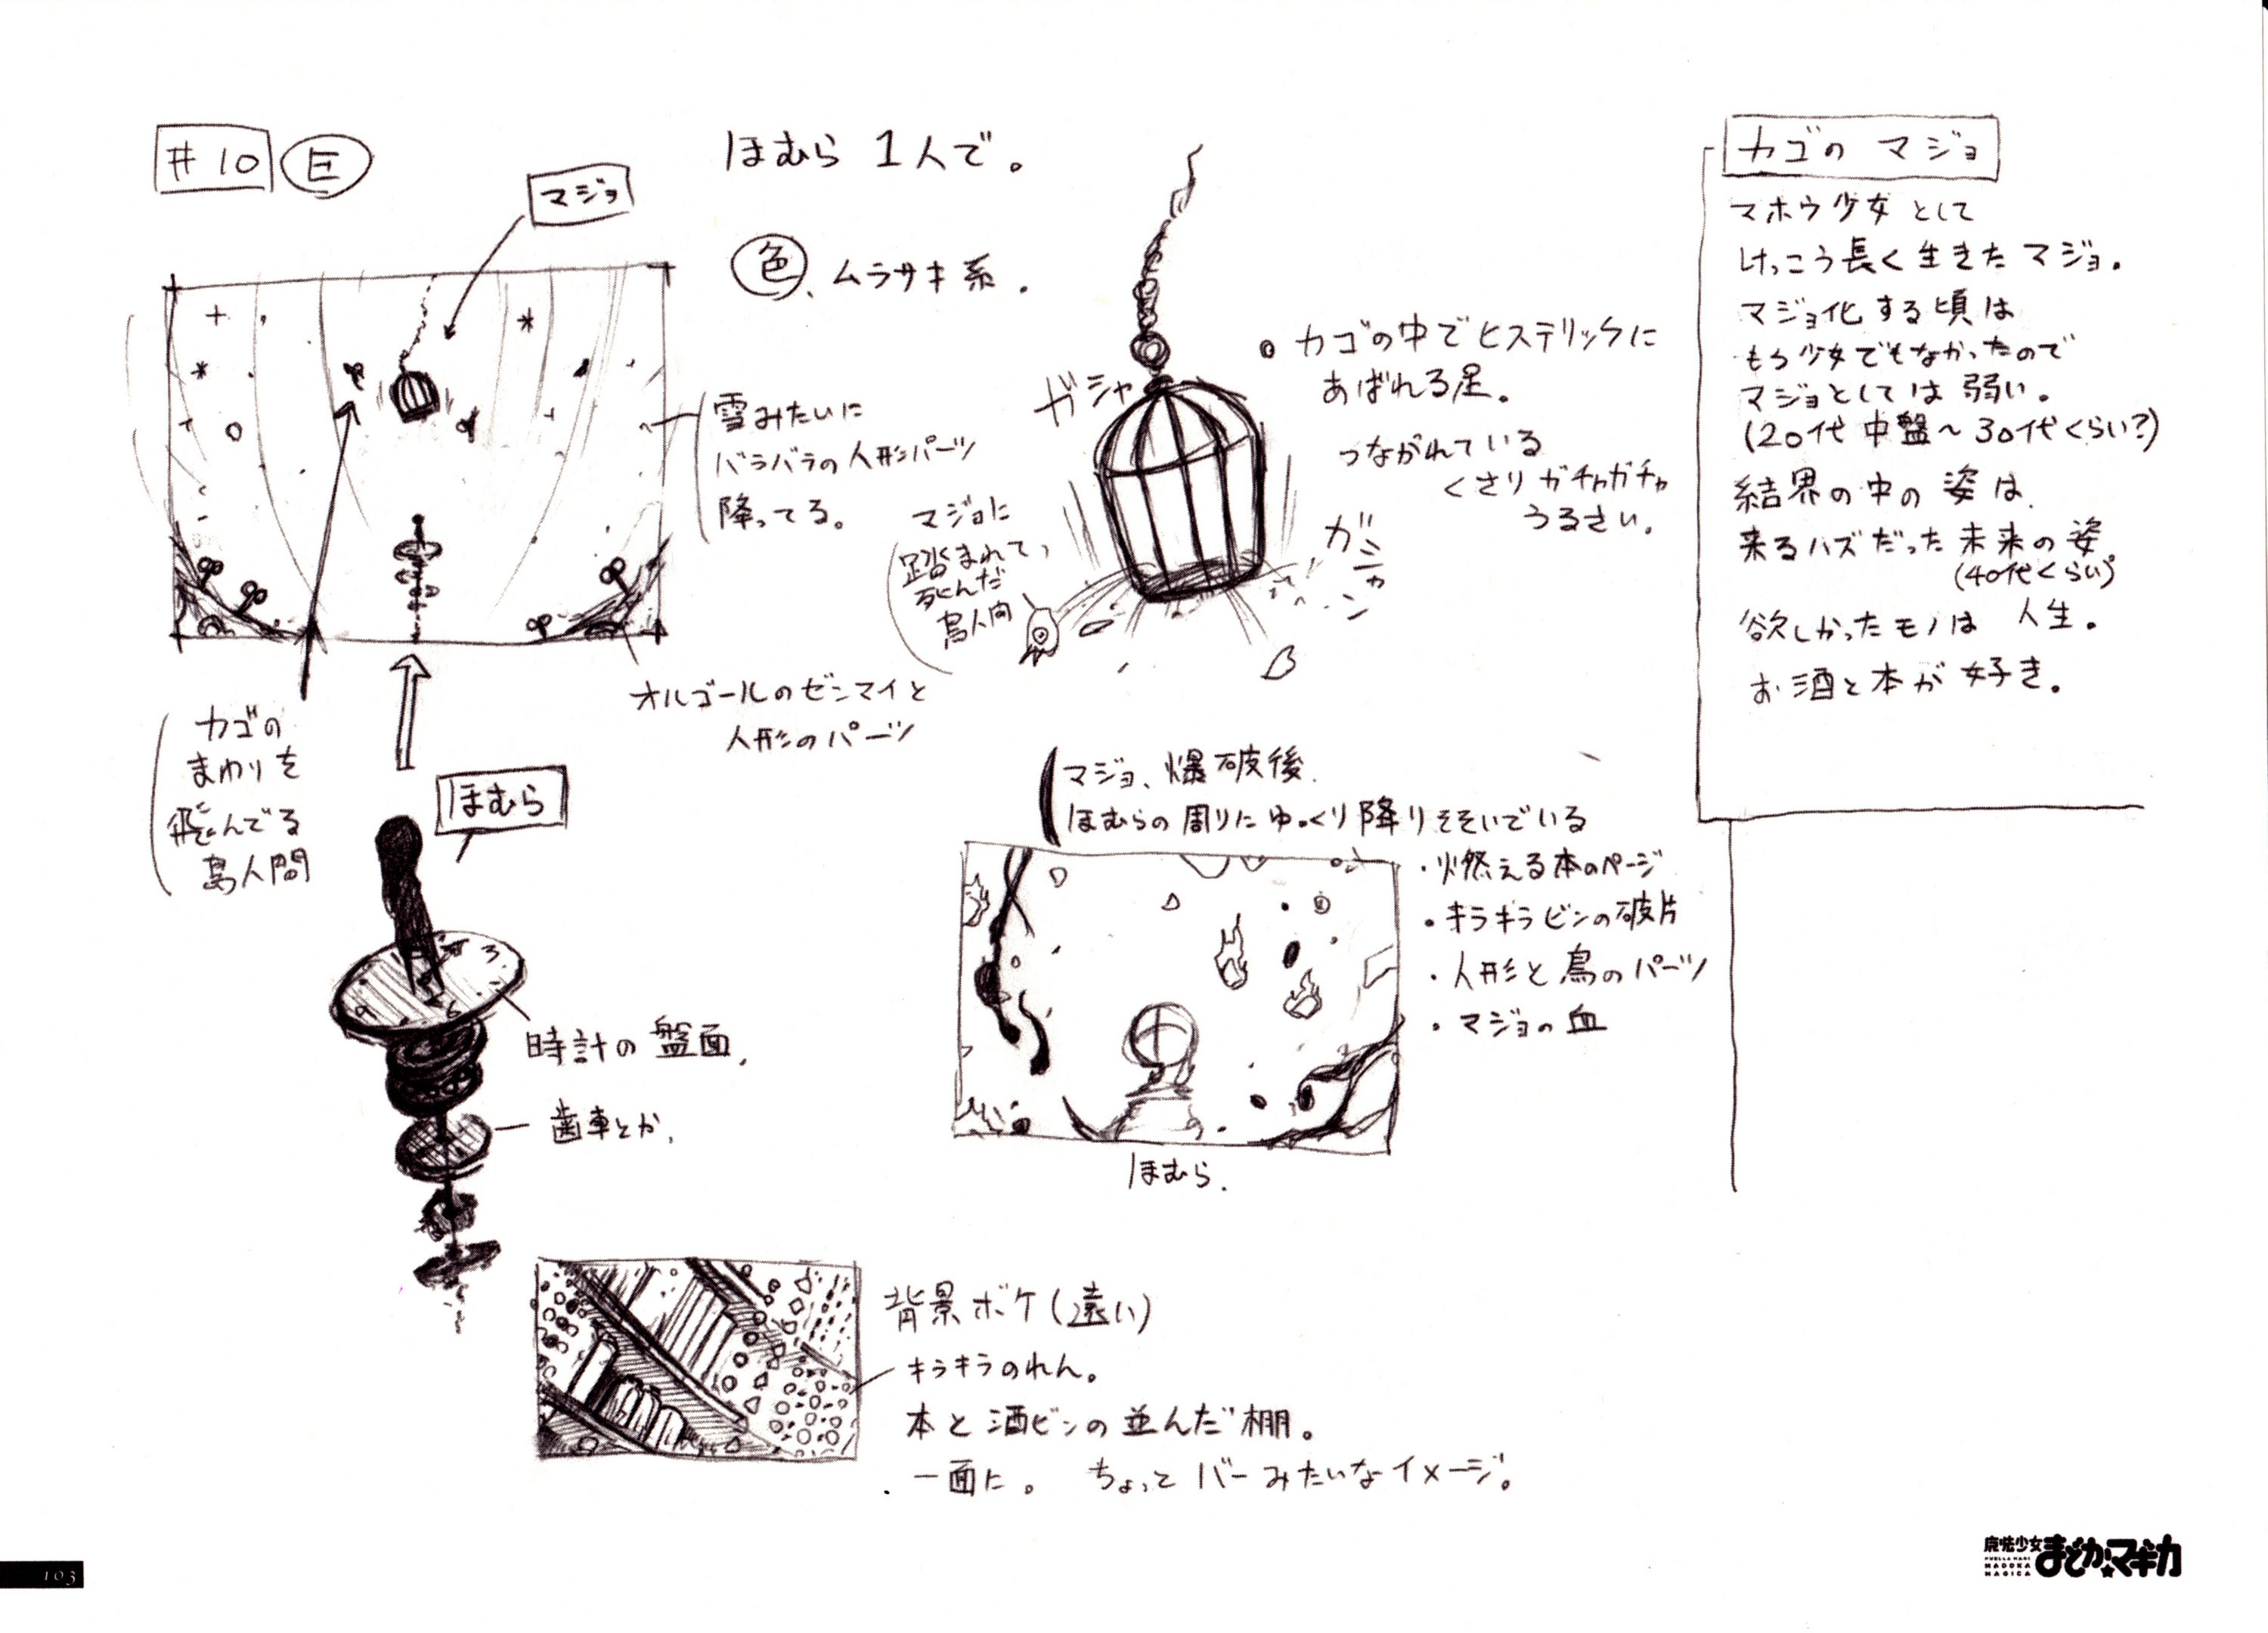 #10 E
マジョ
ほむら 1人で。
色、ムラサキ系.
雪みたいに
バラバラの人形パーツ
降ってる。
オルゴールのゼンマイと
人形のパーツ
カゴの
まわりを
飛んでる
鳥人間
ほむら
時計の盤面.
歯車とか.
ガシャ
ガシャン
マジョに
踏まれて、
死んだ
鳥人間
カゴの中でヒステリックに
あばれる足。
つながれている
くさり ガチャガチャ
うるさい.
マジョ、爆破後.
ほむらの周りにゆっくり降りそそいでいる
・燃える本のページ
・キラキラビンの破片
・人形と鳥のパーツ
・マジョの血
ほむら.
背景ボケ(遠い)
キラキラのれん。
本と酒ビンの並んだ棚。
一面に。 ちょっとバーみたいなイメージ。
カゴの マジョ
マホウ少女として
けっこう長く生きたマジョ.
マジョ化する頃は
もう少女でもなかったので
マジョとしては弱い。
(20代中盤〜30代くらい?)
結界の中の姿は、
来るハズだった未来の姿。
(40代くらい)
欲しかったモノは 人生。
お酒と本が好き。
3
6
9
103
魔法少女
まどか☆マギカ
PUELLA MAGI
MADOKA
MAGICA